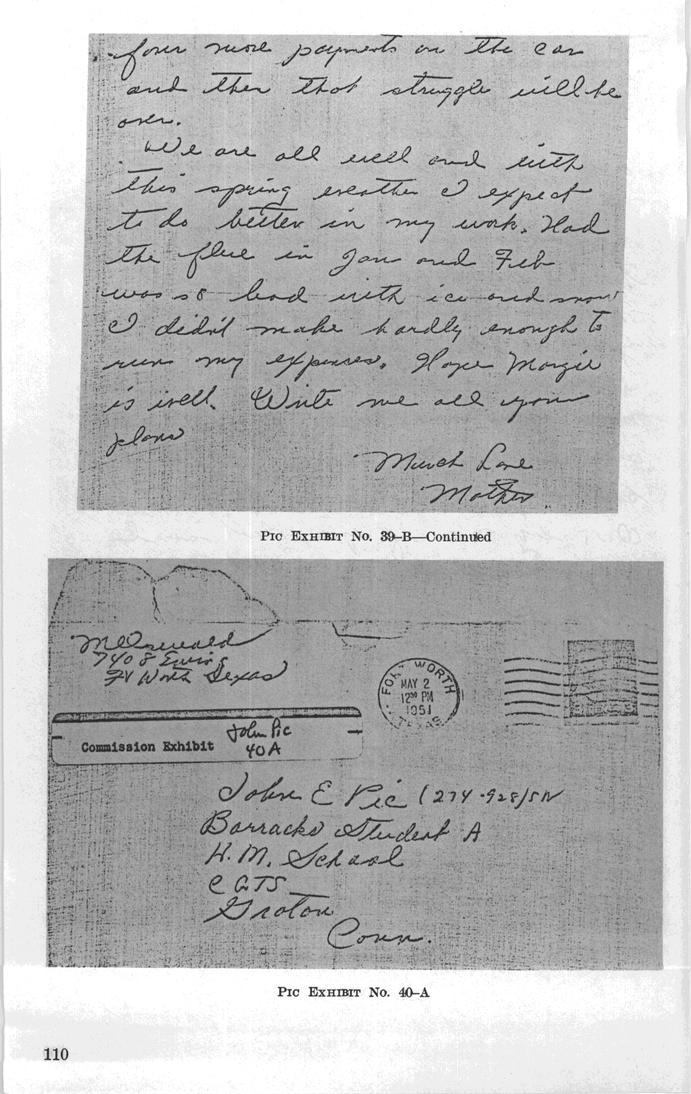 four more payments on the car
and then that struggle will be
over.
We are all well and with
this spring weather I expect
to do better in my work. Had
the flue in Jan and Feb
was so bad with ice and snow
I didn't make hardly enough to
run my expenses. Hope Margie
is well. Write me all your
plans
Much Love
Mother.
PIC EXHIBIT No. 39-B—Continued
M Oswald
7408 Ewing
Ft Worth Texas
FORT WORTH
MAY 2
12 30 PM
1951
TEXAS
John Pic
Commission Exhibit 40A
John E Pic (274-928) SN
Barracks Student A
H. M. School
C G T S
Groton
Conn.
PIC EXHIBIT No. 40-A
110